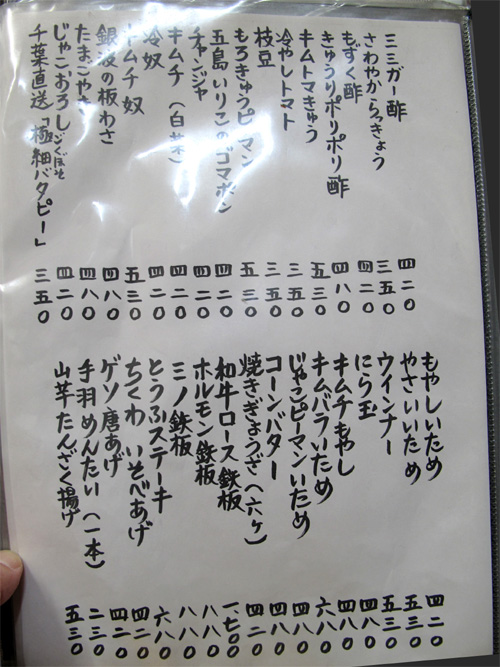 ミミガー酢 四二〇
さわやからっきょう 三五〇
もずく酢 四二〇
きゅうりポリポリ酢 四八〇
キムトマきゅう 五三〇
冷やしトマト 三五〇
枝豆 三五〇
もろきゅうピーマン 五三〇
五島いりこのゴマポン 四二〇
チャンジャ 四二〇
キムチ(白菜) 四二〇
冷奴 四二〇
キムチ奴 五三〇
銀波の板わさ 四八〇
たまごやき 四八〇
じゃこおろし 四二〇
千葉直送「極細バタピー」 三五〇
ごくぼそ
もやしいため 四二〇
やさいいため 五三〇
ウインナー 五三〇
にら玉 四八〇
キムチもやし 四八〇
キムバラいため 六八〇
じゃこピーマンいため 四八〇
コーンバター 四八〇
焼きぎょうざ(六ヶ) 四二〇
和牛ロース鉄板 一七〇〇
ホルモン鉄板 八八〇
ミノ鉄板 八八〇
とうふステーキ 六八〇
ちくわいそべあげ 四二〇
ゲソ唐あげ 四二〇
手羽めんたい(一本) 二三〇
山芋たんざく揚げ 五三〇